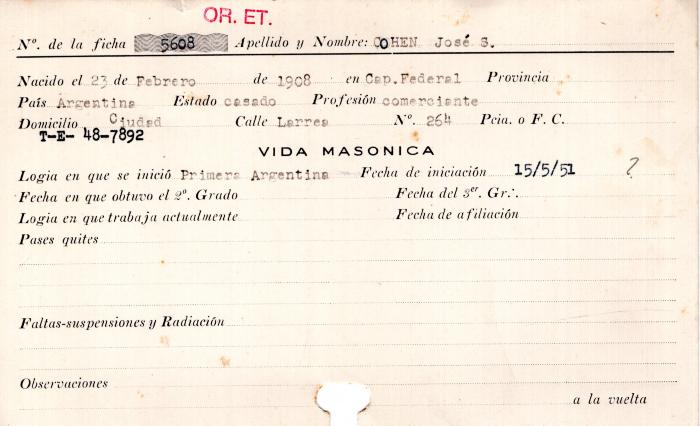 OR. ET.
Nº. de la ficha 5608 Apellido y Nombre: COHEN José S.
Nacido el 23 de Febrero de 1908 en Cap.Federal Provincia
País Argentina Estado casado Profesión comerciante
Domicilio Ciudad Calle Larrea Nº. 264 Pcia. o F. C.
T-E- 48-7892
VIDA MASONICA
Logia en que se inició Primera Argentina Fecha de iniciación 15/5/51 ?
Fecha en que obtuvo el 2º. Grado Fecha del 3er. Gr∴
Logia en que trabaja actualmente Fecha de afiliación
Pases quites
Faltas-suspensiones y Radiación
Observaciones
a la vuelta